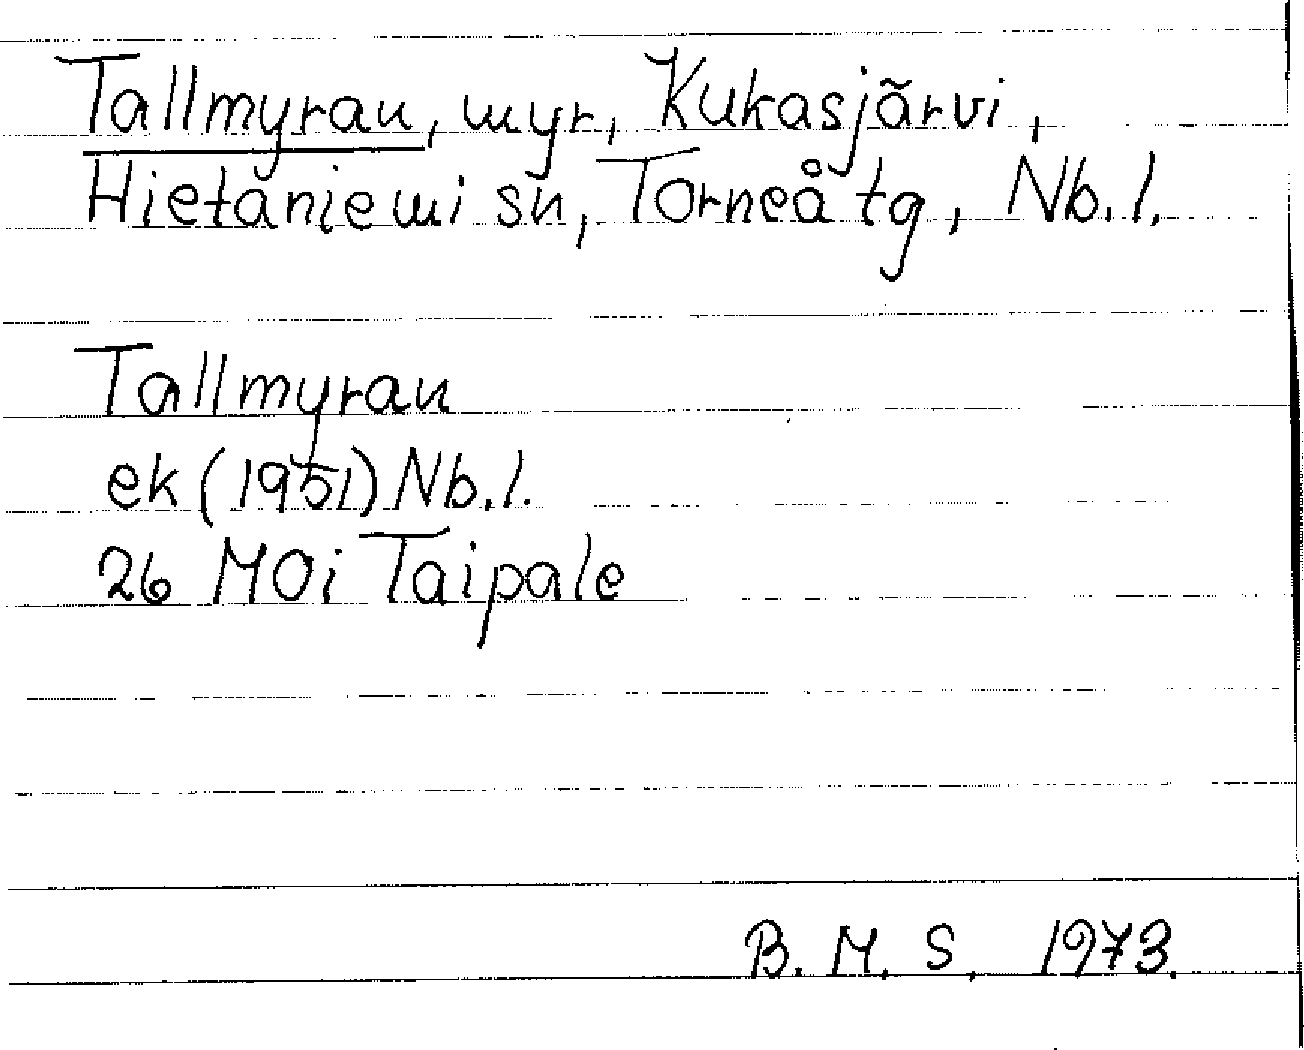 Tallmyran, myr, Kukasjärvi,
Hietaniemi sn, Torneå tg, Nb. l.
Tallmyran
ek (1951) Nb. l.
26 MOi Taipale
B. M. S. 1973.